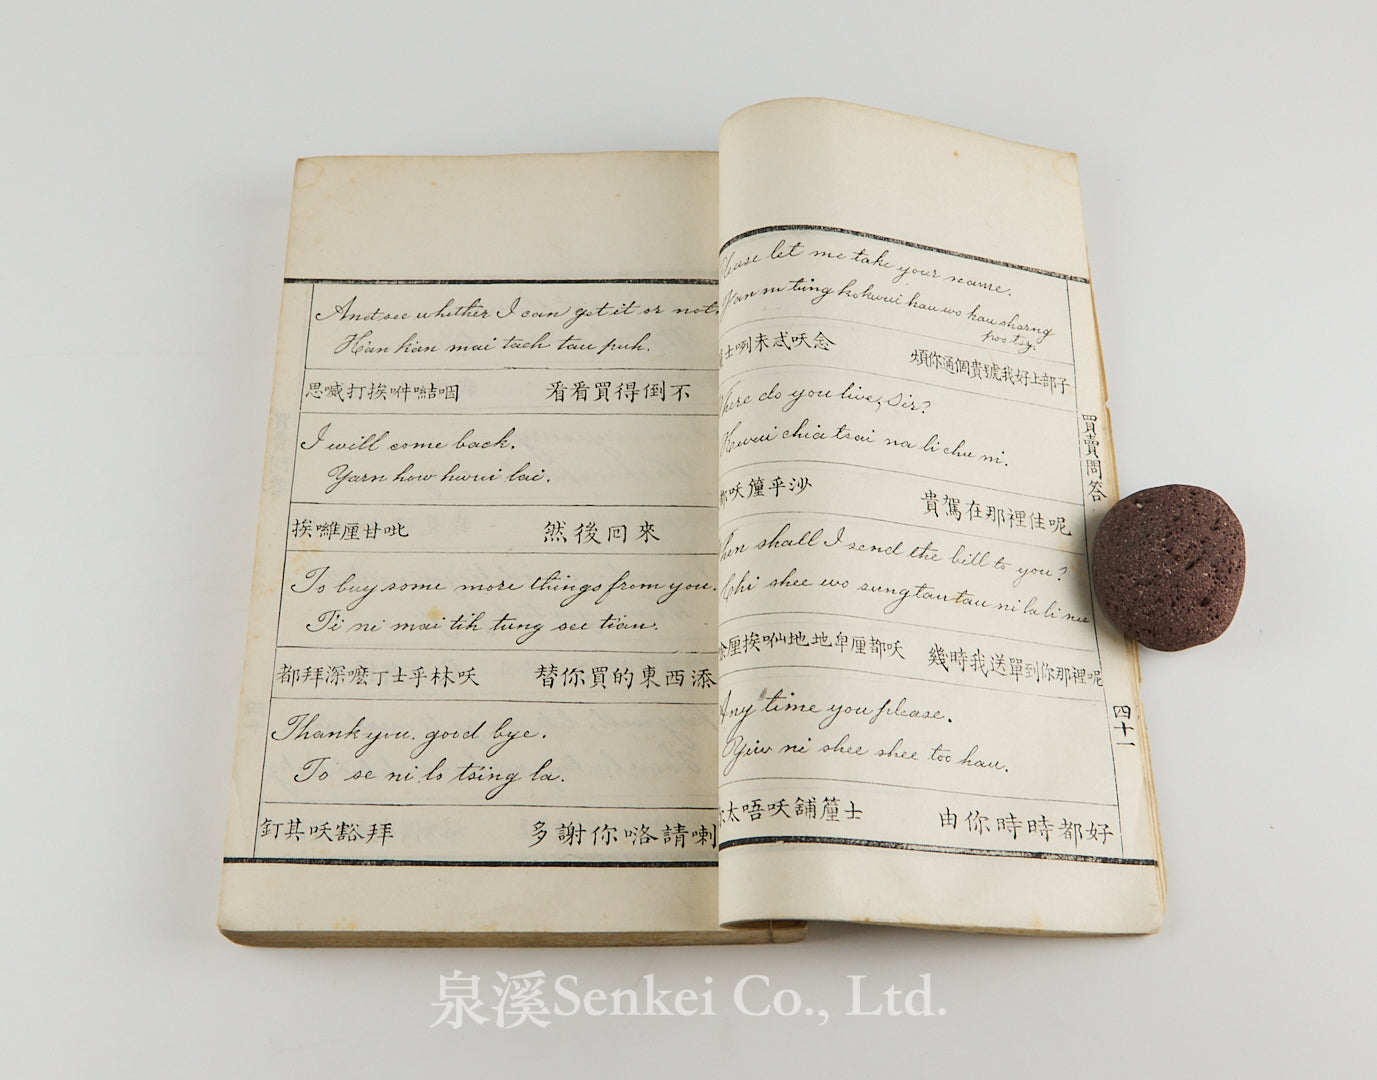 And see whether I can get it or not.
Han kan mai tach tau puh.
思喴打挨嘛㗖咽 看看買得倒不
I will come back.
Yarn how hwui lai.
挨囇厘甘吡 然後回來
To buy some more things from you.
Ti ni mai tih tung see tian.
都拜深嚒丁士乎林呋 替你買的東西添
Thank you. good bye.
To se ni lo tsing la.
釘其呋豁拜 多謝你咯請喇
Please let me take your name.
ni tung ko kwui hau wo hau sharng
poo tsz.
士咧未忒呋念 煩你通個貴號我好上部子
Where do you live, Sir?
Kwui chia tsai na li chu ni.
呋𨭎乎沙 貴駕在那裡住呢
When shall I send the bill to you?
Chi shee wo sung tau tau ni la li nee
厘挨呥地地皁厘都呋 幾時我送單到你那裡呢
Any time you please.
Yiw ni shee shee too hau.
太唔呋舖𨭎士 由你時時都好
買賣問答
四十一
泉溪Senkei Co., Ltd.